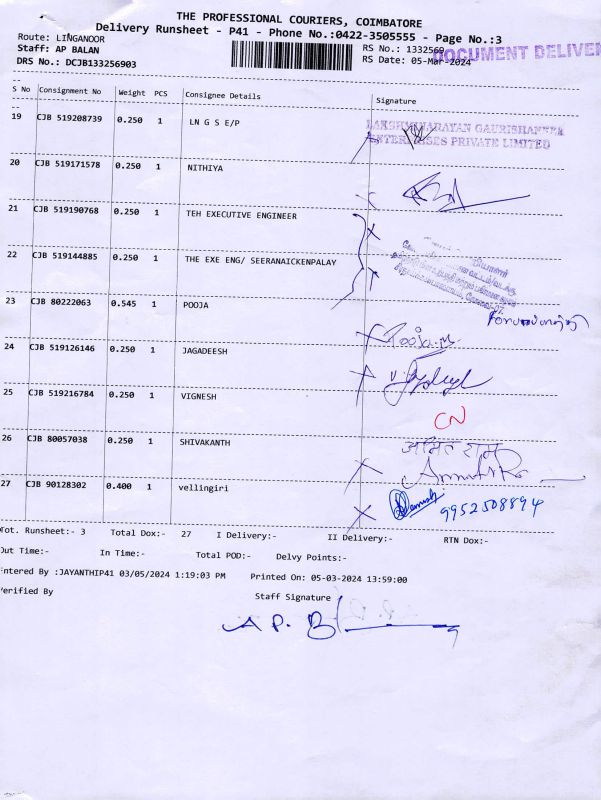 THE PROFESSIONAL COURIERS, COIMBATORE
Delivery Runsheet - P41 - Phone No.:0422-3505555 - Page No.:3
Route: LINGANOOR
RS No.: 1332569
DOCUMENT DELIVER
Staff: AP BALAN
RS Date: 05-Mar-2024
DRS No.: DCJB133256903
S No Consignment No Weight PCS Consignee Details Signature
19 CJB 519208739 0.250 1 LN G S E/P
LAKSHMINARAYAN GAURISHANKER
ENTERPRISES PRIVATE LIMITED
20 CJB 519171578 0.250 1 NITHIYA
21 CJB 519190768 0.250 1 TEH EXECUTIVE ENGINEER
22 CJB 519144885 0.250 1 THE EXE ENG/ SEERANAICKENPALAY
23 CJB 80222063 0.545 1 POOJA
Pooja.m
24 CJB 519126146 0.250 1 JAGADEESH
25 CJB 519216784 0.250 1 VIGNESH
CN
26 CJB 80057038 0.250 1 SHIVAKANTH
अमित राम
27 CJB 90128302 0.400 1 vellingiri
9952508894
Tot. Runsheet:- 3 Total Dox:- 27 I Delivery:- II Delivery:- RTN Dox:-
Out Time:- In Time:- Total POD:- Delvy Points:-
Entered By :JAYANTHIP41 03/05/2024 1:19:03 PM Printed On: 05-03-2024 13:59:00
Verified By Staff Signature
A P. B